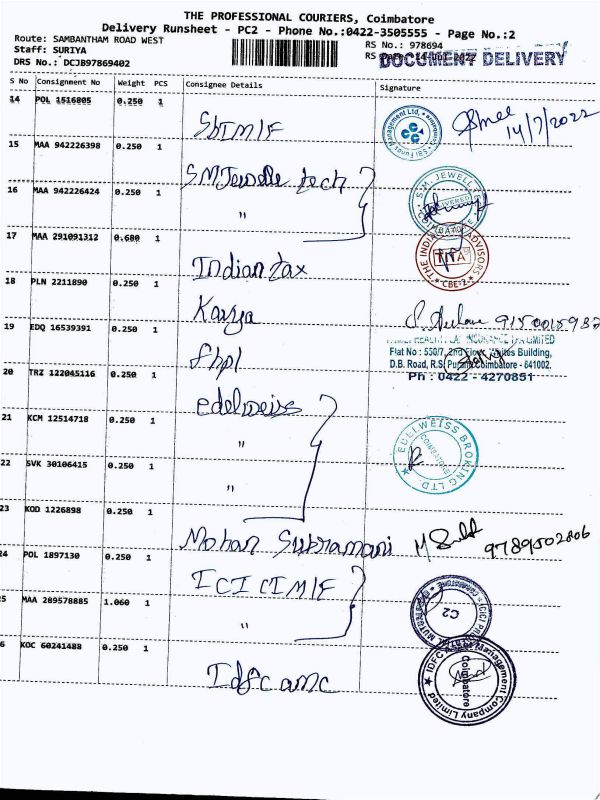 THE PROFESSIONAL COURIERS, Coimbatore
Delivery Runsheet - PC2 - Phone No.:0422-3505555 - Page No.:2
Route: SAMBANTHAM ROAD WEST
Staff: SURIYA
DRS No.: DCJB97869402
RS No.: 978694
DOCUMENT DELIVERY
S No Consignment No Weight PCS Consignee Details Signature
14 POL 1516805 0.250 1 SBIMIF 14/7/2022
SBI Funds Management Ltd.
15 MAA 942226398 0.250 1 SMJewelle tech
S.M. JEWELL
DELIVERED
COIMBATORE
16 MAA 942226424 0.250 1 "
17 MAA 291091312 0.680 1 Indian tax
THE INDIA ADVISORS
CBE-2
18 PLN 2211890 0.250 1 Kavya 9150015982
19 EDQ 16539391 0.250 1 fhpl
INSURANCE LIMITED
Flat No : 550/7, 2nd Floor, Whites Building,
D.B. Road, R.S. Puram, Coimbatore - 641002.
Ph : 0422 - 4270851
20 TRZ 122045116 0.250 1 edelweiss
21 KCM 12514718 0.250 1 "
EDELWEISS BROKING LTD.
COIMBATORE
22 SVK 30106415 0.250 1 "
23 KOD 1226898 0.250 1 Mohan Subramani 9789502806
24 POL 1897130 0.250 1 ICICIMIF
C2
25 MAA 289578885 1.060 1 "
6 KOC 60241488 0.250 1 Idfc amc
IDFC Asset Management Company Limited
Coimbatore